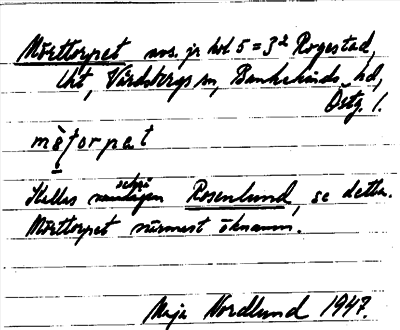 Mörttorpet avs. fr hel 5 = 3² Rogestad,
lht, Vårdsbergs sn, Bankekinds hd,
Östg. l.
mè̩torpat
Kallas också Rosenlund, se detta.
Mörttorpet närmast öknamn.
Maja Nordlund 1947.